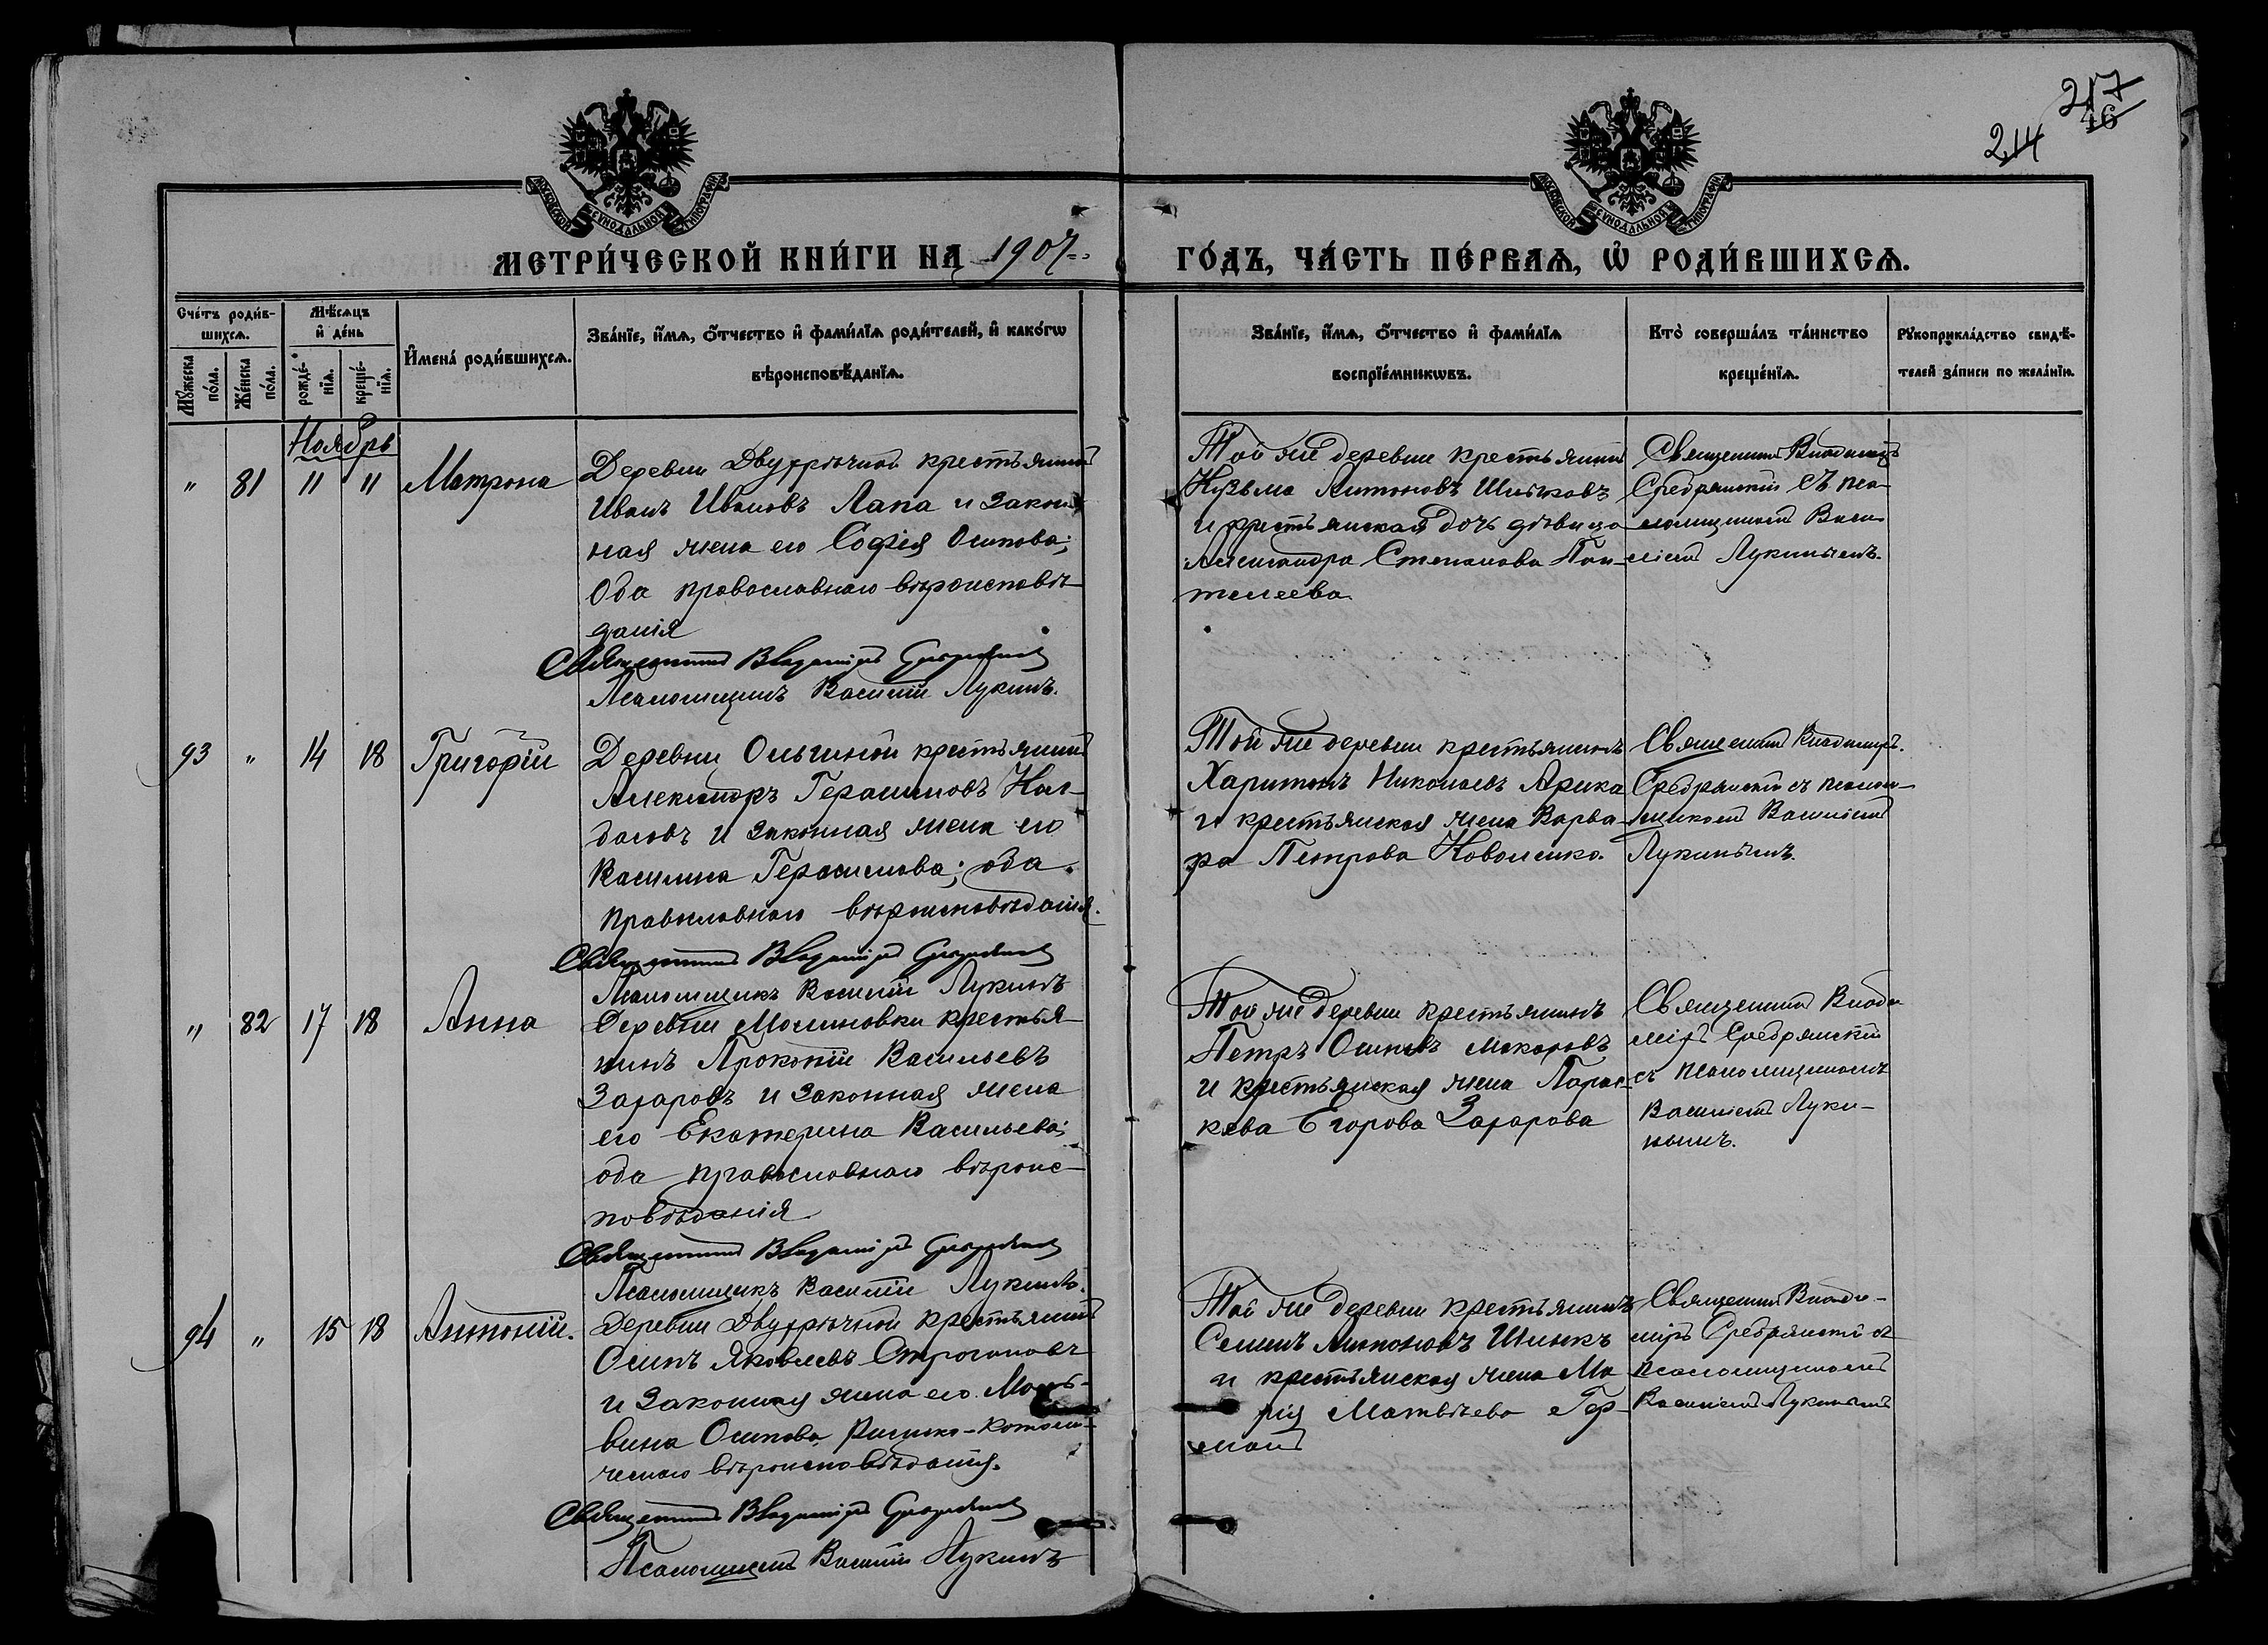 217
46
214
МОСКОВСКОЙ СѴНОДАЛЬНОЙ ТИПОГРАФІИ
МОСКОВСКОЙ СѴНОДАЛЬНОЙ ТИПОГРАФІИ
МЕТРИ́ЧЕСКОЙ КНИ́ГИ НА 1907
ГО́ДЪ, ЧА́СТЬ ПЕ́РВАѦ, Ѡ҆ РОДИ́ВШИХСѦ.
Сче́тъ роди́в-
шихсѧ.
Мѹ́жеска
по́ла.
Же́нска
по́ла.
Мѣ́сѧцъ
и҆ де́нь
рожде́-
нїѧ.
креще́-
нїѧ.
И҆мена̀ роди́вшихсѧ.
Зва́нїе, и҆́мѧ, ѻ҆́тчество и҆ фами́лїѧ роди́телей, и҆ како́гѡ
вѣроисповѣ́данїѧ.
Зва́нїе, и҆́мѧ, ѻ҆́тчество и҆ фами́лїѧ
воспрїе́мникѡвъ.
Кто̀ соверша́лъ та́инство
креще́нїѧ.
Рѹкоприкла́дство свидѣ́-
телей за́писи по жела́нїю.
Ноябрь
" 81 11 11 Матрона
Деревни Двухрѣчной крестьянинъ
Иванъ Ивановъ Лапа и закон
ная жена его Софія Осипова;
Оба православнаго вѣроисповѣ-
данія
Священникъ Владиміръ Сребрянскій
Псаломщикъ Василій Лукинъ.
Той же деревни крестьянинъ
Кузьма Антоновъ
и крестьянская дочь дѣвица
Александра Степанова Пан-
телеева
Священникъ Владиміръ
Сребрянскій съ пса-
ломщикомъ Васи-
ліемъ Лукинымъ.
93 " 14 18 Григорій
Деревни Ольгиной крестьянинъ
Александръ Герасимовъ
и законная жена его
Василиса Герасимова; оба
православнаго вѣроисповѣданія.
Священникъ Владиміръ Сребрянскій
Псаломщикъ Василій Лукинъ
Той же деревни крестьянинъ
Харитонъ Николаевъ Арика
и крестьянская жена Варва-
ра Петрова Коваленко.
Священникъ Владиміръ
Сребрянскій съ псалом-
щикомъ Василіемъ
Лукинымъ.
" 82 17 18 Анна
Деревни Малиновки крестья-
нинъ Прокопій Васильевъ
Захаровъ и законная жена
его Екатерина Васильева;
оба православнаго вѣроис-
повѣданія
Священникъ Владиміръ Сребрянскій
Псаломщикъ Василій Лукинъ.
Той же деревни крестьянинъ
Петръ Осиповъ Макаровъ
и крестьянская жена Парас-
кева Егорова Захарова
Священникъ Влади
міръ Сребрянскій
съ псаломщикомъ
Василіемъ Луки-
нымъ.
94 " 15 18 Антоній.
Деревни Двухрѣчной крестьянинъ
Осипъ Яковлевъ Строгановъ
и законная жена его Маль-
вина Осипова, Римско-католи-
ческаго вѣроисповѣданія.
Священникъ Владиміръ Сребрянскій
Псаломщикъ Василій Лукинъ
Той же деревни крестьянинъ
Семенъ Антоновъ
и крестьянская жена Ма
рія Матвѣева Гер-
манъ
Священникъ Влади-
міръ Сребрянскій съ
псаломщикомъ
Василіемъ Лукинымъ